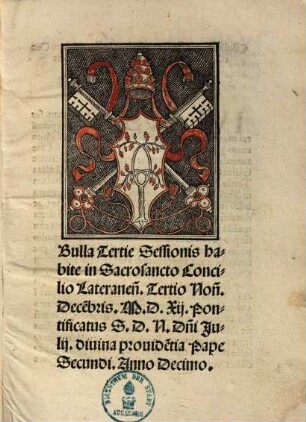 Bulla Tertie Sessionis ha-
bite in Sacrosancto Conci-
lio Lateraneñ. Tertio Noñ.
Decẽbris. M.D.Xij. Pon-
tificatus S. D. N. Dñi Ju-
lij. diuina prouidẽtia Pape
Secundi. Anno Decimo.